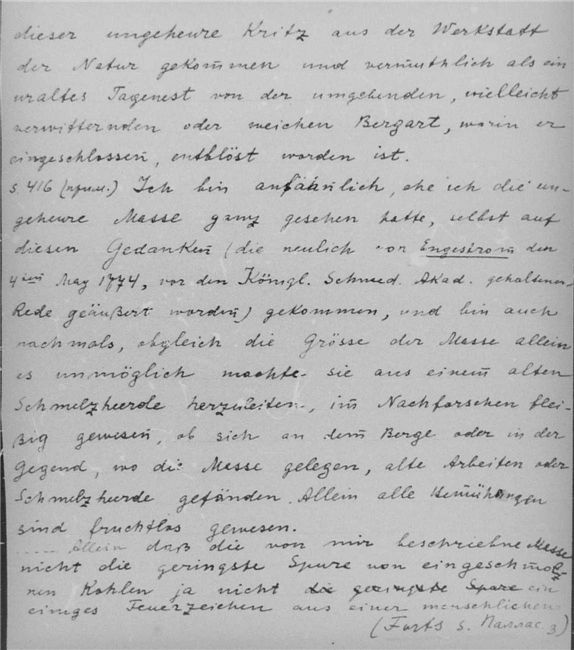 dieser ungeheure Kritz aus der Werkstatt
der Natur gekommen und vermuthlich als ein
uraltes Tagenest von der umgebenden, vielleicht
verwitternden oder weichen Bergart, worin er
eingeschlossen, entblöst worden ist.
S 416 (прим.) Ich bin anfänglich, ehe ich die un-
geheure Masse ganz gesehen hatte, selbst auf
diesen Gedanken (die neulich vor Engestrom den
4ten May 1774, vor den Königl. Schwed. Akad. gehaltenen
Rede geäußert worden) gekommen, und bin auch
nachmals, obgleich die Grösse der Masse allein
es unmöglich machte sie aus einem alten
Schmelzheerde herzuleiten, im Nachforschen flei-
ßig gewesen, ob sich an dem Berge oder in der
Gegend, wo die Messe gelegen, alte Arbeiten oder
Schmelzheerde gefänden. Allein alle Bemühungen
sind fruchtlos gewesen.
..... Allein daß die von mir beschriebne Messe
nicht die geringste Spure von eingeschmolz-
nen Kohlen ja nicht die geringste Spure ein
einiges Feuerzeichen aus einer menschlichen
(Forts s. Паллас 3)